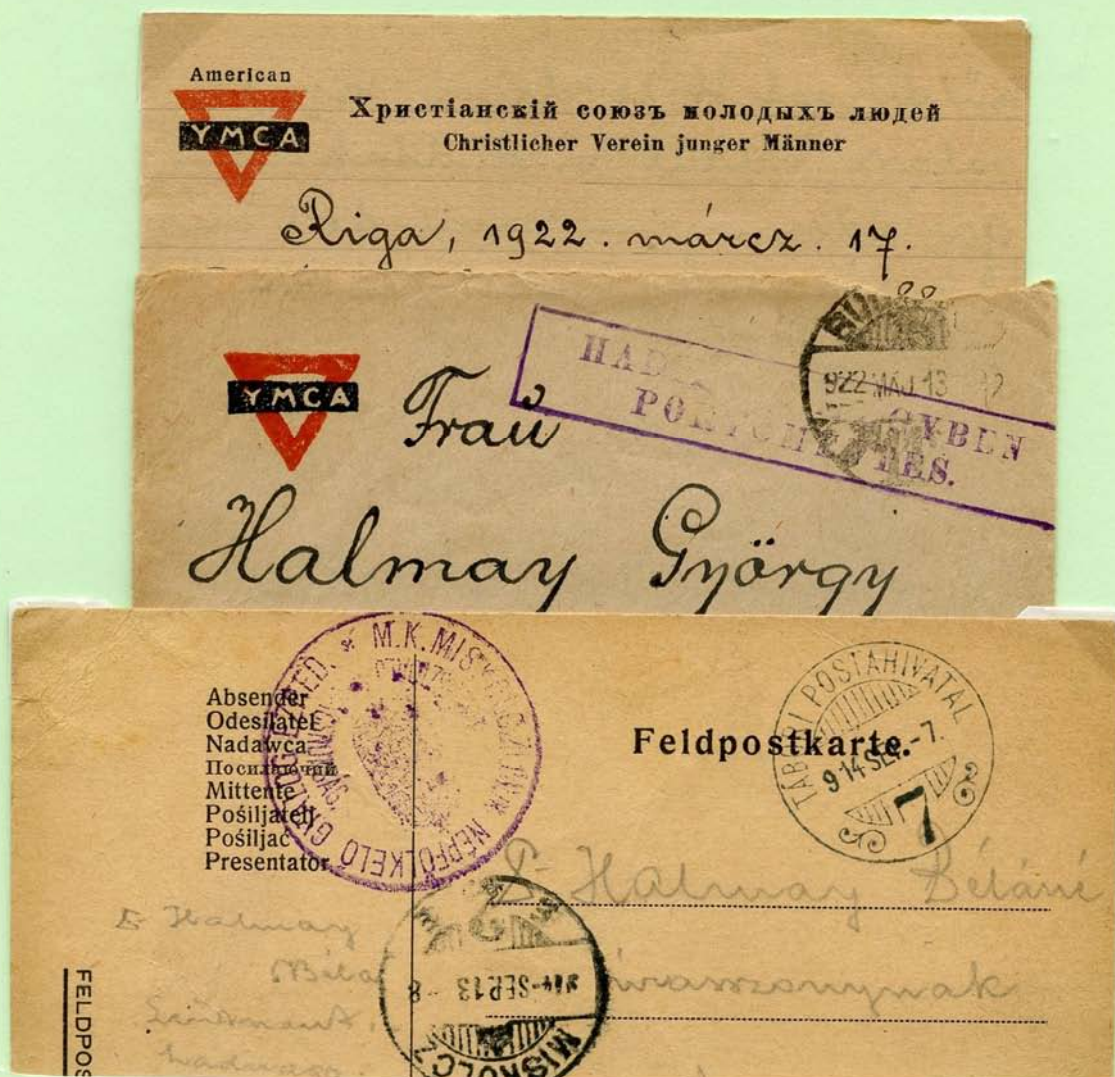 American
YMCA
Христіанскій союзъ молодыхъ людей
Christlicher Verein junger Männer
Riga, 1922. márcz. 17.
YMCA
Frau
Halmay György
HAD
GYBEN
PORTÓMENTES.
922 MÁJ. 13 12
Absender
Odesílatel
Nadawca
Посилаючий
Mittente
Pošiljatelj
Pošiljač
Presentator
M. K. MISKOLCZI
NÉPFÖLKELŐ GYALOG EZRED.
Feldpostkarte.
TÁBORI POSTAHIVATAL
914 SEP. -7.
7
Halmay Béláné
Halmay
Béla
914 SEP. 13 8
MISKOLCZ
FELDPOS